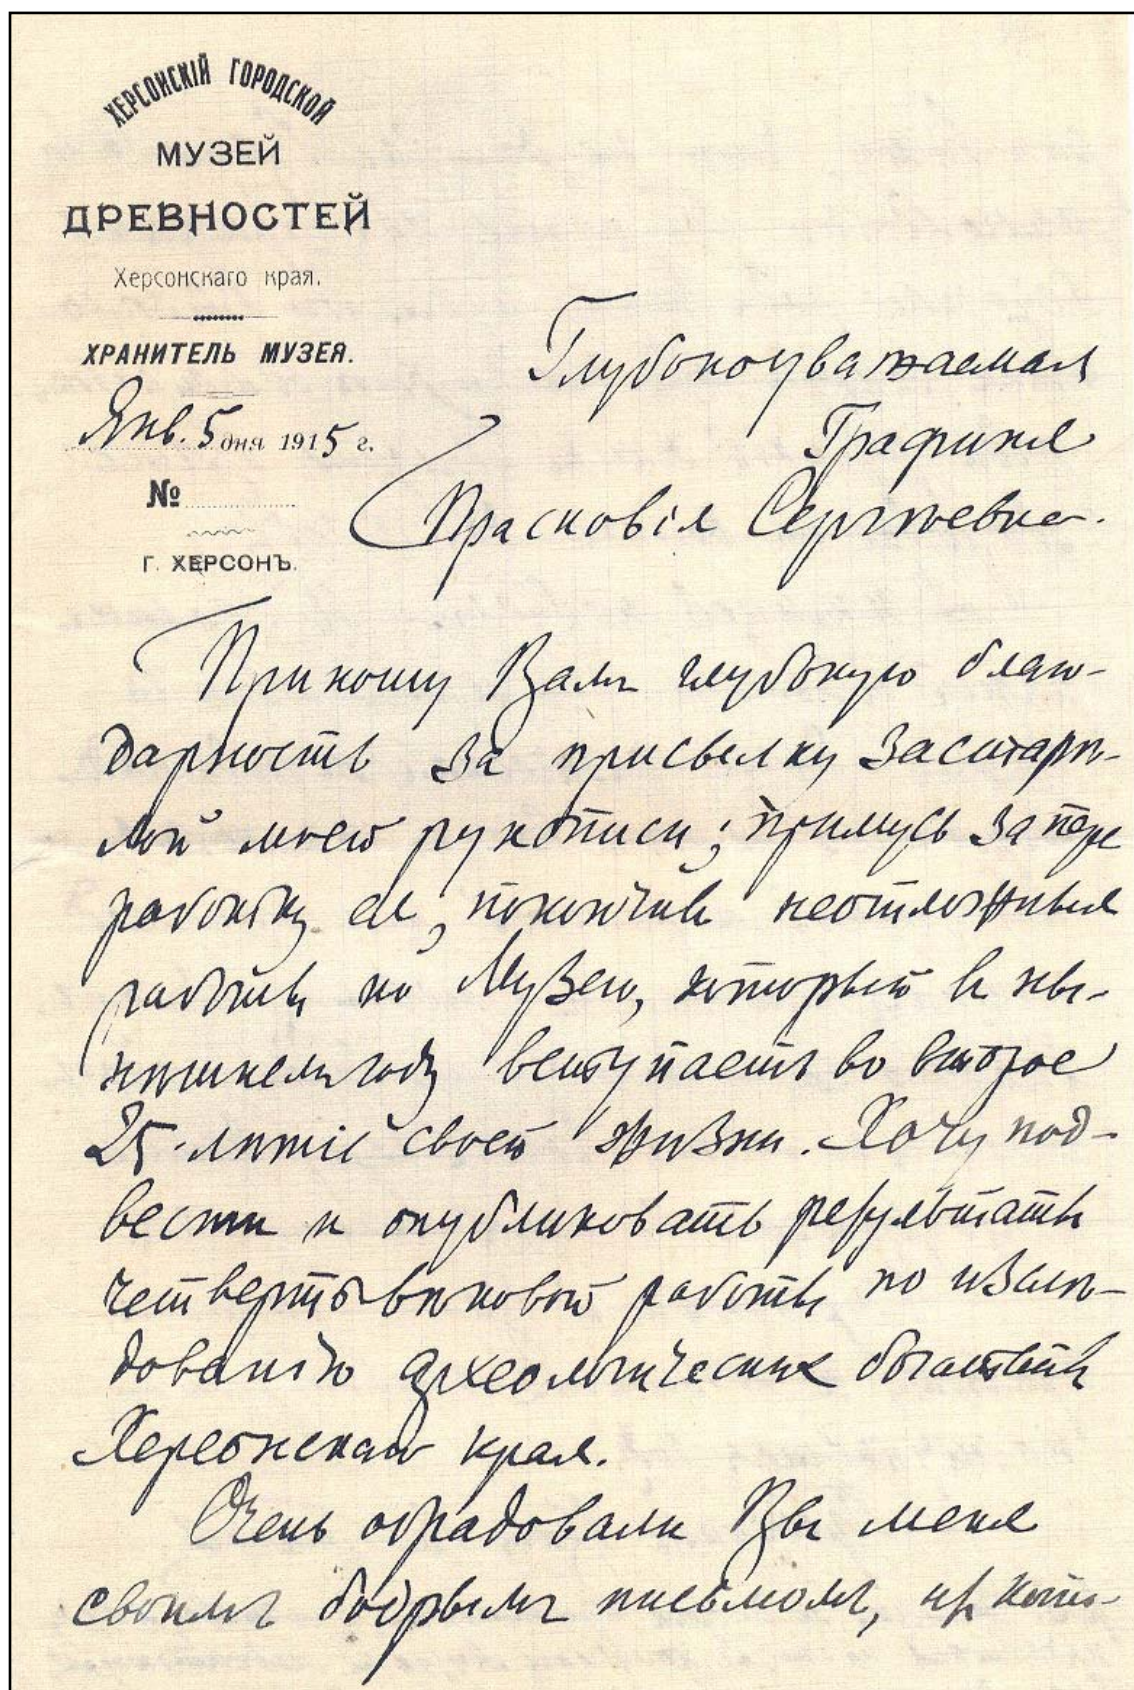 ХЕРСОНСКІЙ ГОРОДСКОЙ
МУЗЕЙ
ДРЕВНОСТЕЙ
Херсонскаго края.
ХРАНИТЕЛЬ МУЗЕЯ.
Янв. 5 дня 1915 г.
№
Г. ХЕРСОНЪ.
Глубокоуважаемая
Графиня
Прасковія Сергѣевна.
Приношу Вамъ глубокую благо-
дарность за присылку застарѣ-
лой моей рукописи; примусь за пере
работку ея, покончивъ неотложныя
работы по Музею, который въ ны-
нѣшнемъ году вступаетъ во второе
25-лѣтіе своей жизни. Хочу под-
вести и опубликовать результаты
четвертьвѣковой работы по изслѣ-
дованію археологическихъ богатствъ
Херсонскаго края.
Очень обрадовали Вы меня
своимъ бодрымъ письмомъ, изъ кото-